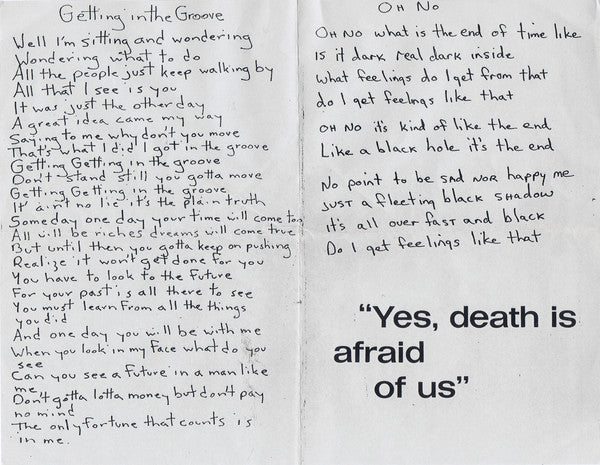 Getting in the Groove
Well I'm sitting and wondering
Wondering what to do
All the people just keep walking by
All that I see is you
It was just the other day
A great idea came my way
Saying to me why don't you move
That's what I did I got in the groove
Getting Getting in the groove
Don't stand still you gotta move
Getting Getting in the groove
It ain't no lie it's the plain truth
Someday one day your time will come too
All will be riches dreams will come true
But until then you gotta keep on pushing
Realize it won't get done for you
You have to look to the future
For your past is all there to see
You must learn from all the things
you did
And one day you will be with me
When you look in my face what do you
see
Can you see a future in a man like
me
Don't gotta lotta money but don't pay
no mind
The only fortune that counts is
in me.
OH NO
OH NO what is the end of time like
Is it dark real dark inside
What feelings do I get from that
do I get feelings like that
OH NO it's kind of like the end
Like a black hole it's the end
No point to be sad nor happy me
just a fleeting black shadow
It's all over fast and black
Do I get feelings like that
“Yes, death is
afraid
of us”